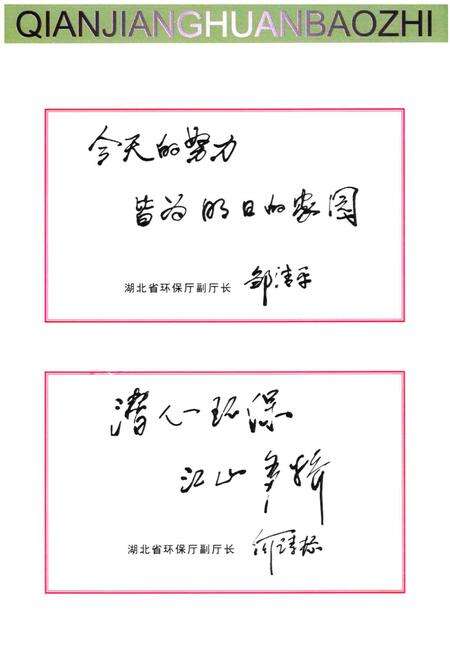 QIANJIANGHUANBAOZHI
今天的努力
皆为明日的家园
湖北省环保厅副厅长 邹清平
潜人一环保
江山多娇
湖北省环保厅副厅长